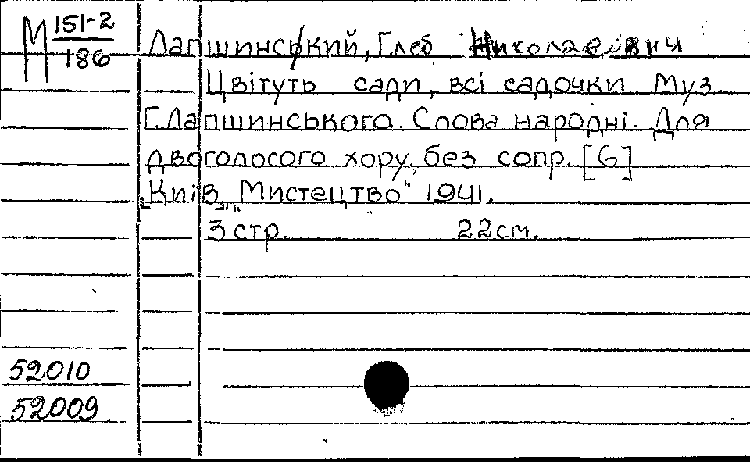 М 151-2
186
Лапшинський, Глеб Николаевич
Цвітуть сади, всі садочки Муз
Г. Лапшинського. Слова народні. Для
двоголосого хору, без сопр. [G]
Київ „Мистецтво" 1941.
3 стр. 22 см.
52010
52009